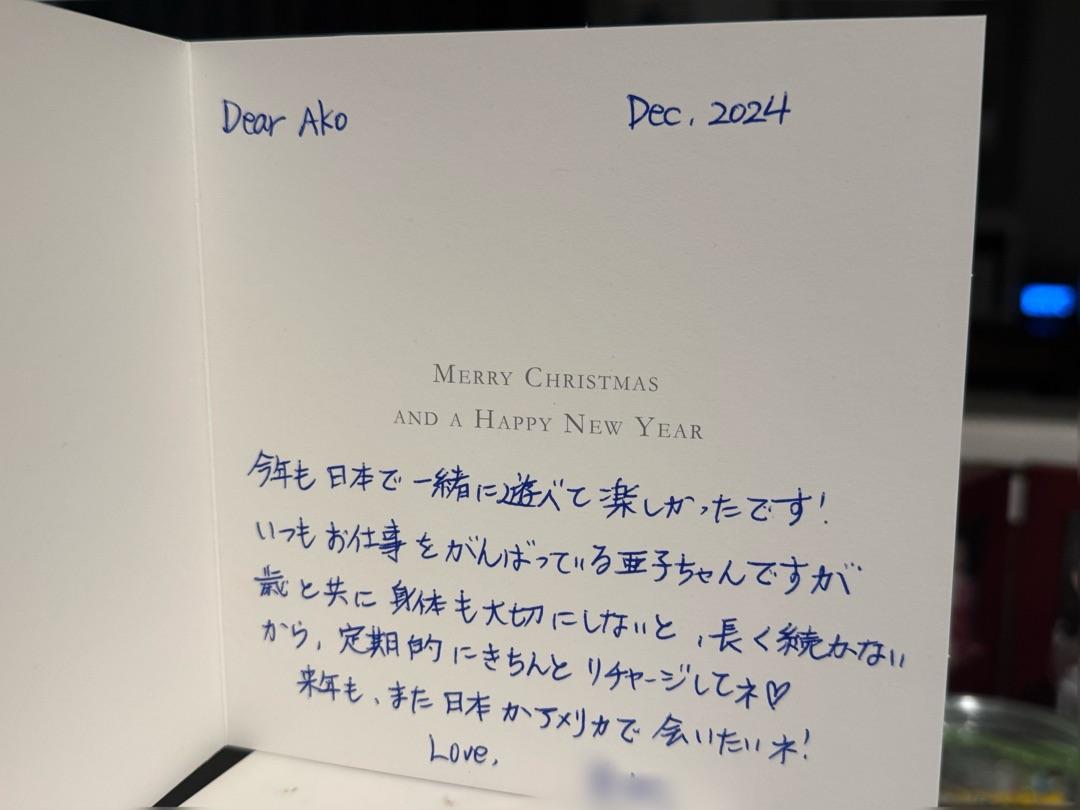 Dear Ako
Dec. 2024
MERRY CHRISTMAS
AND A HAPPY NEW YEAR
今年も日本で一緒に遊べて楽しかったです！
いつもお仕事をがんばっている亜子ちゃんですが
歳と共に身体も大切にしないと、長く続かない
から、定期的にきちんとリチャージしてネ♡
来年も、また日本かアメリカで会いたいネ！
Love,